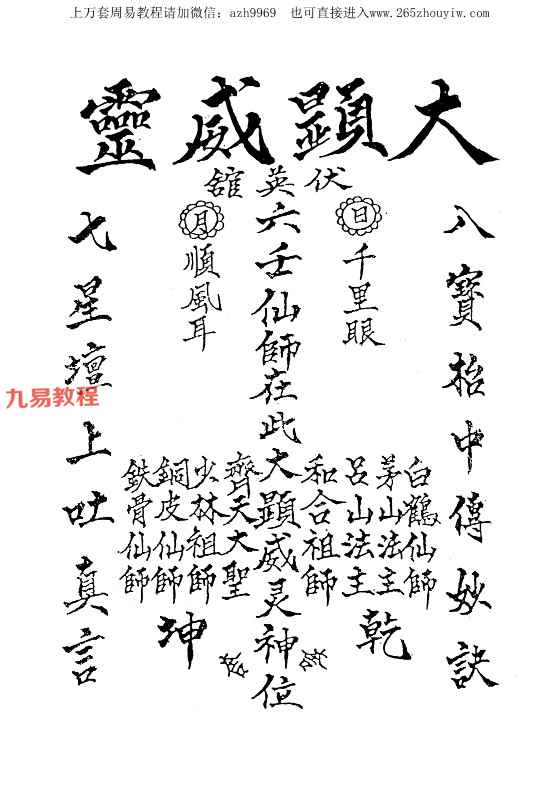 上万套周易教程请加微信：azh9969 也可直接进入www.265zhouyiw.com
大顕威靈
伏英舘
八寶抬中傳妙訣
日
千里眼
白鶴仙師
茅山法主
呂山法主
和合祖師
乾
六壬仙師在此大顕威灵神位
月
順風耳
齊天大聖
少林祖師
銅皮仙師
鉄骨仙師
坤
七星壇上吐真言
九易教程